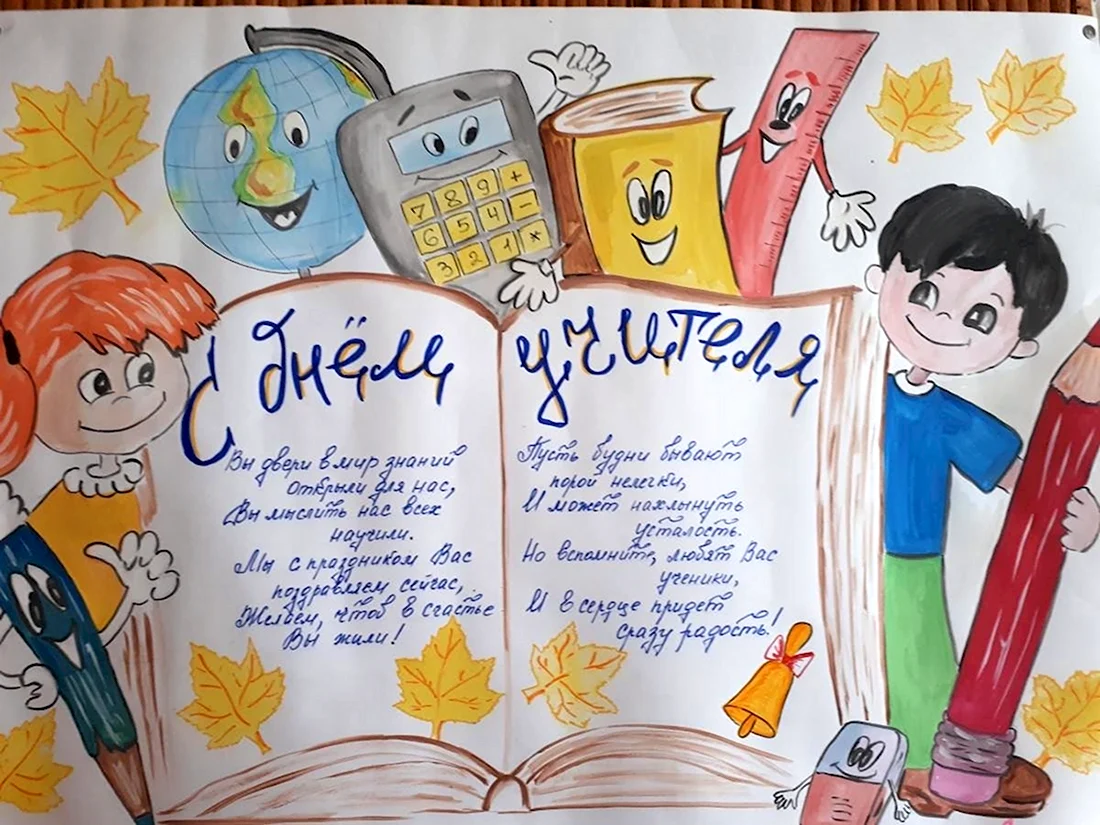 С днём учителя
7 8 9 +
6 5 4 −
3 2 1 *
Вы двери в мир знаний
открыли для нас,
Вы мыслить нас всех
научили.
Мы с праздником Вас
поздравляем сейчас,
Желаем, чтоб в счастье
Вы жили!
Пусть будни бывают
порой нелегки,
И может нахлынуть
усталость.
Но вспомните, любят Вас
ученики,
И в сердце придет
сразу радость!